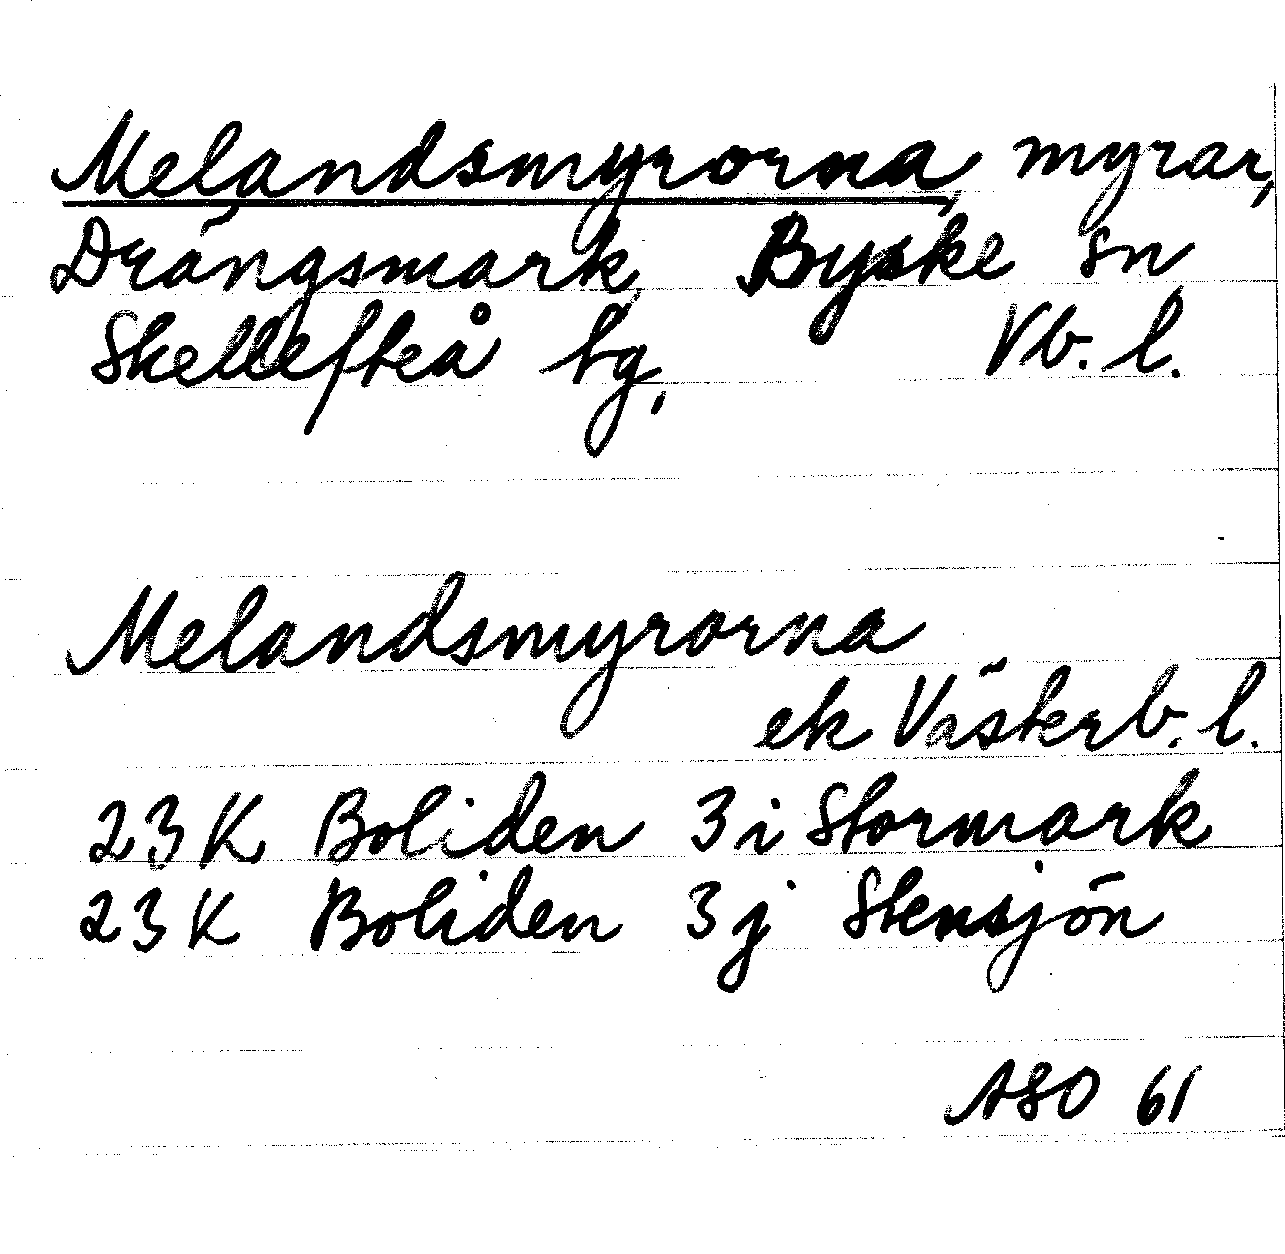 Melandsmyrorna, myrar,
Drängsmark, Byske sn
Skellefteå tg, Vb. l.
Melandsmyrorna
ek Västerb. l.
23 K Boliden 3 i Stormark
23 K Boliden 3 j Stensjön
ASO 61